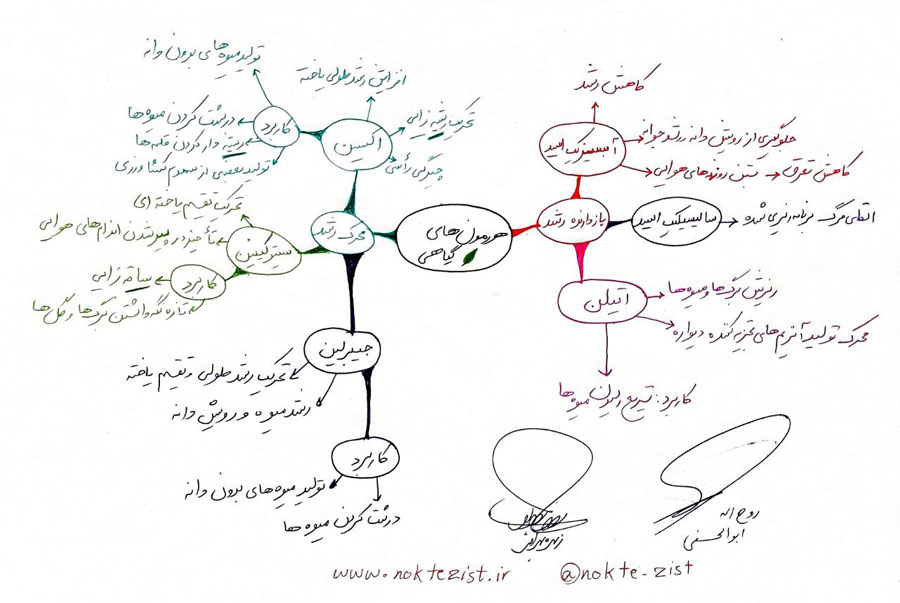 هورمون های
گیاهی
محرک رشد
اکسین
افزایش رشد طولی یاخته
تحریک ریشه زایی
چیرگی رأسی
کاربرد
تولید میوه های بدون دانه
درشت کردن میوه ها
ریشه دار کردن قلمه ها
تولید بعضی از سموم کشاورزی
سیتوکینین
تحریک تقسیم یاخته ای
تأخیر در پیر شدن اندام های هوایی
کاربرد
ساقه زایی
تازه نگه داشتن برگ ها و گل ها
جیبرلین
تحریک رشد طولی و تقسیم یاخته
رشد میوه و رویش دانه
کاربرد
تولید میوه های بدون دانه
درشت کردن میوه ها
بازدارنده رشد
آبسیزیک اسید
کاهش رشد
جلوگیری از رویش دانه و رشد جوانه
بستن روزنه های هوایی → کاهش تعرق
سالیسیلیک اسید
القای مرگ برنامه ریزی شده
اتیلن
ریزش برگ ها و میوه ها
محرک تولید آنزیم های تجزیه کننده دیواره
کاربرد: تسریع رسیدن میوه ها
روح اله
ابوالحسنی
www.noktezist.ir @nokte_zist